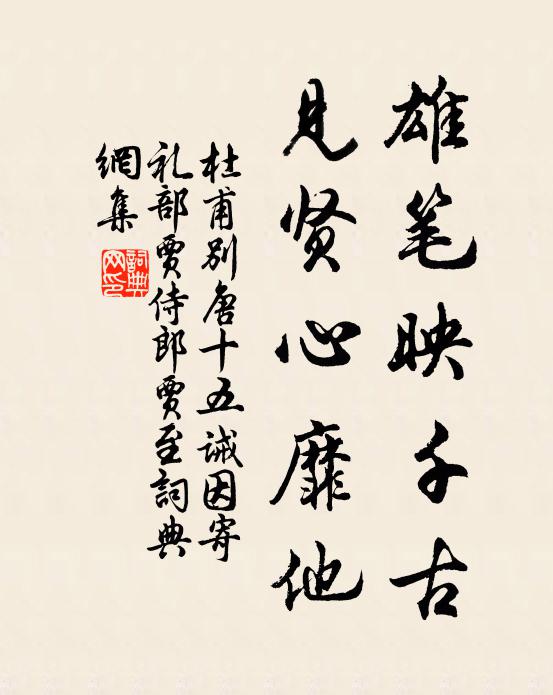 雄笔映千古
见贤心靡他
杜甫别唐十五诫因寄
礼部贾侍郎贾至詞典
網集
詞典网印